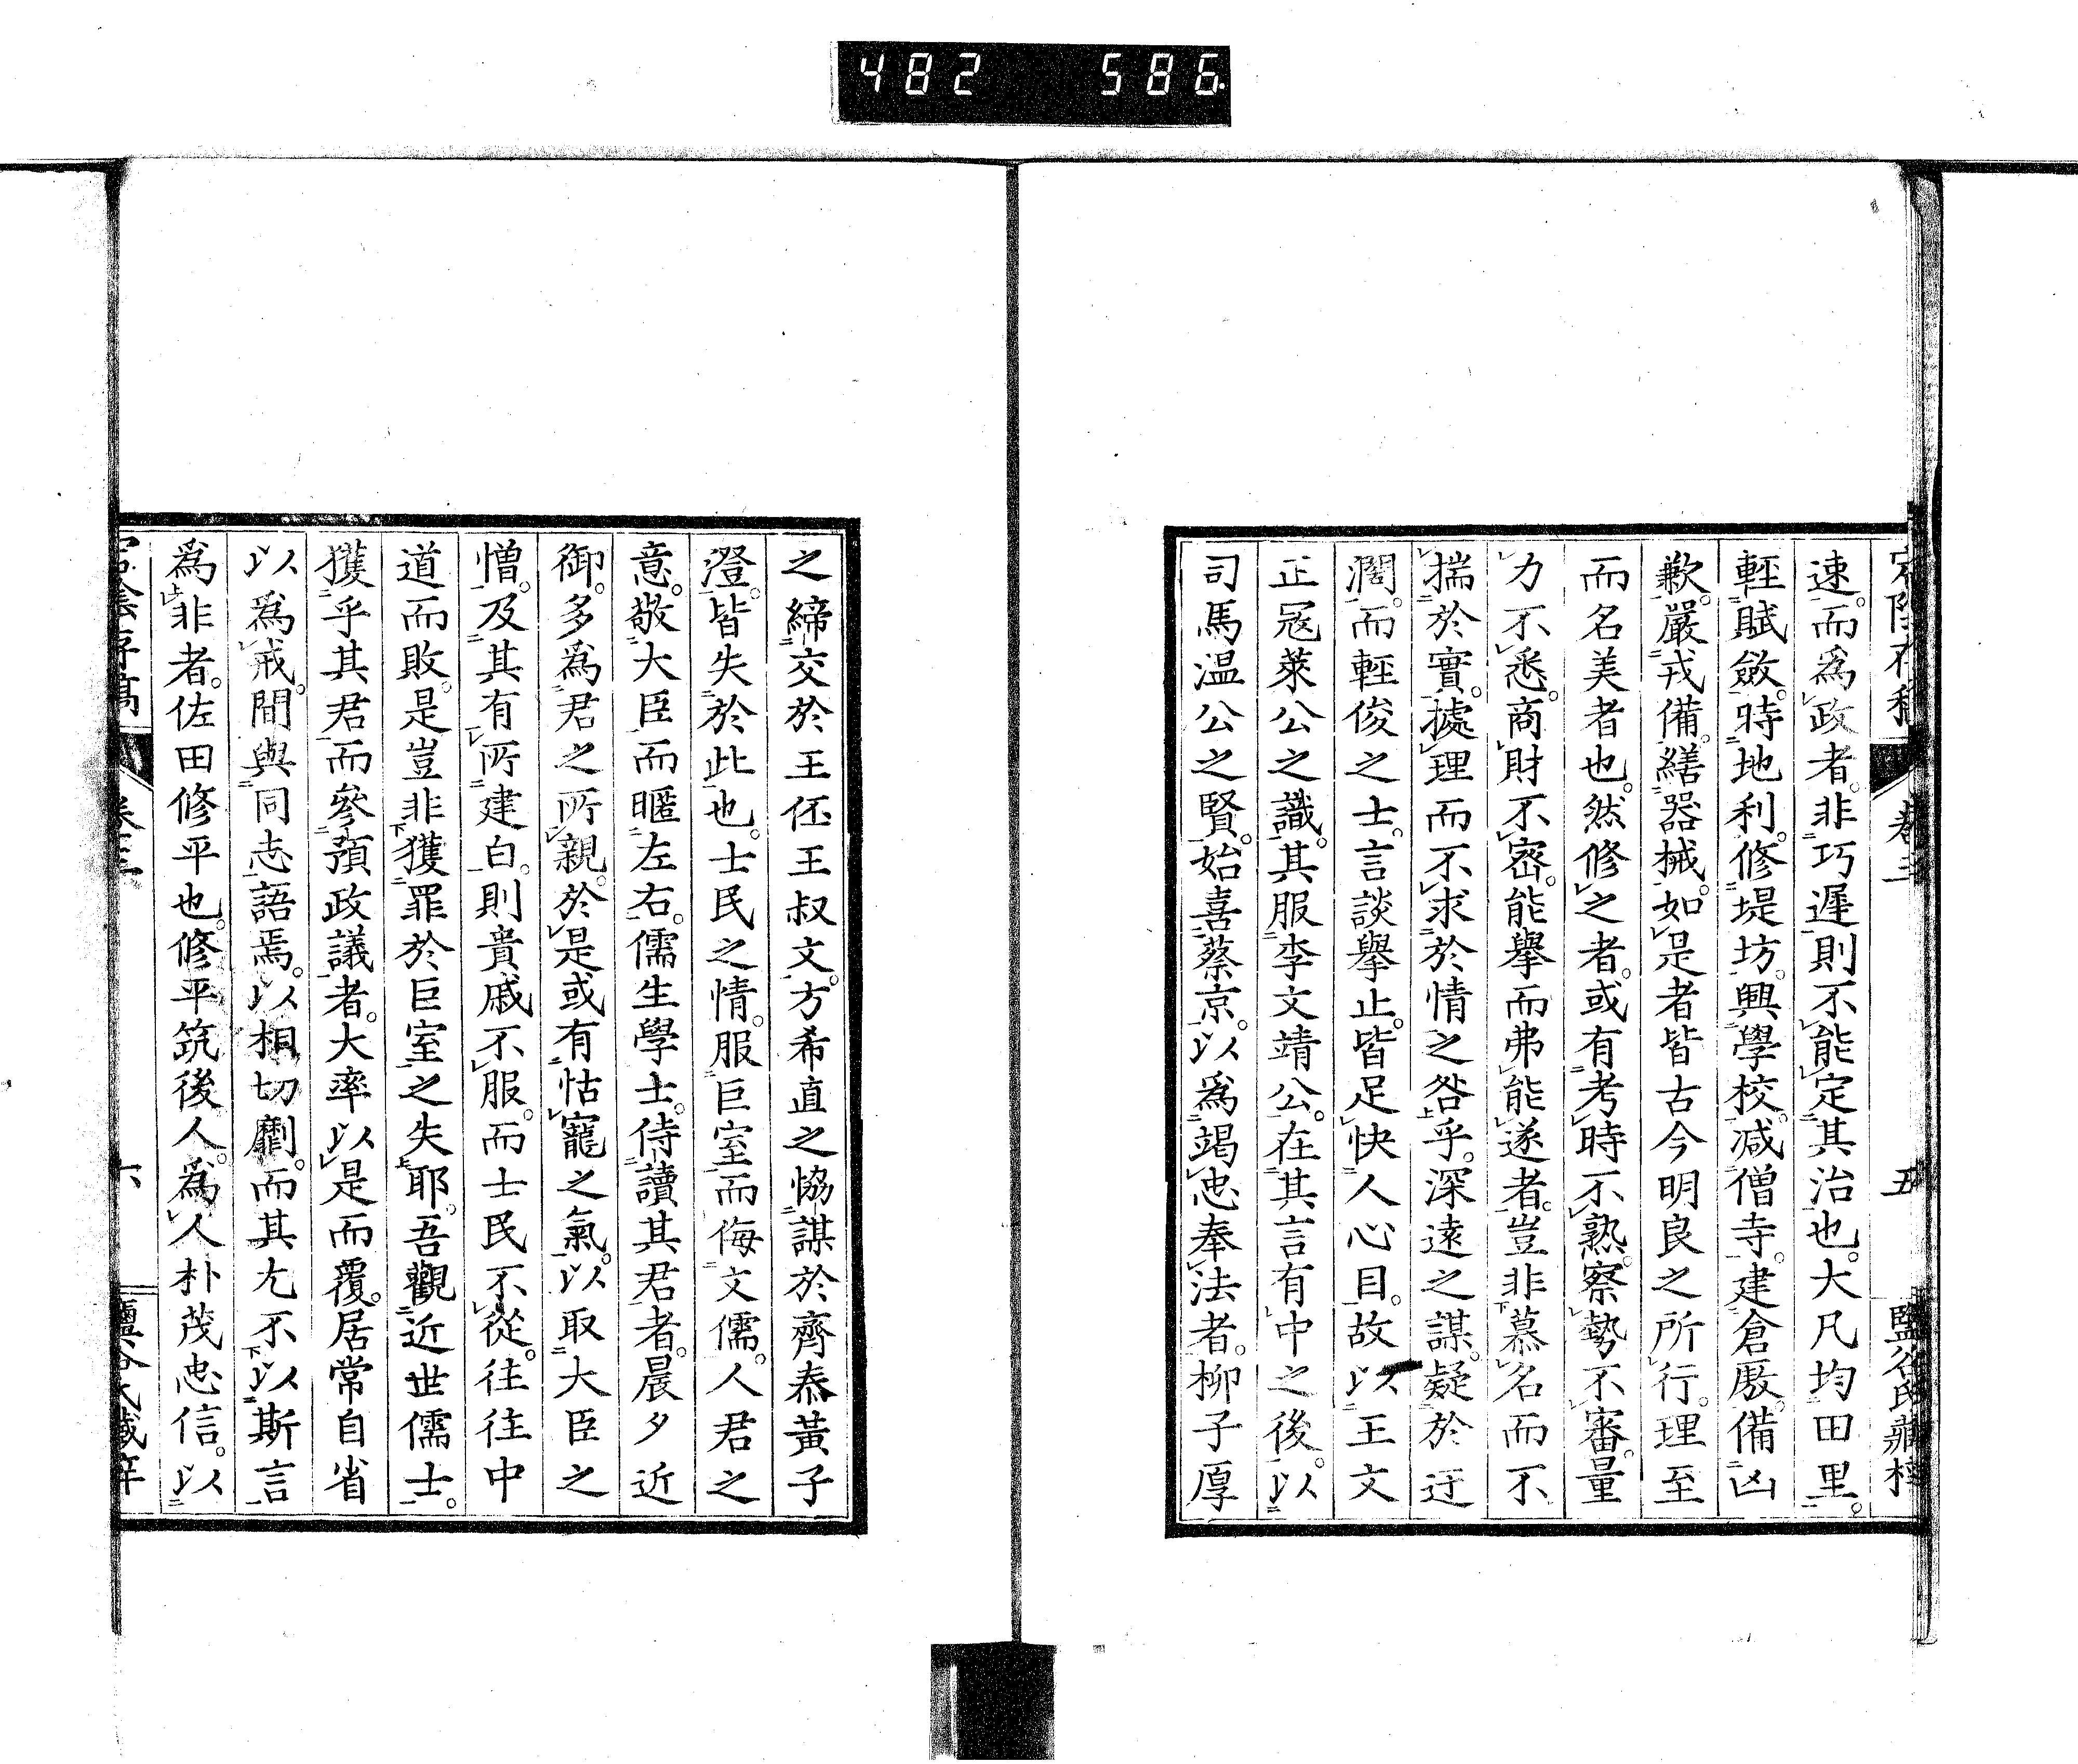 482 586
宕陰存稿 卷三 五 鹽谷氏藏梓
速。而爲政者。非巧遲則不能定其治也。大凡均田里。
輕賦斂。時地利。修堤坊。興學校。減僧寺。建倉廒。備凶
歉。嚴戎備。繕器械。如是者皆古今明良之所行。理至
而名美者也。然修之者。或有考時不熟。察勢不審。量
力不悉。商財不密。能擧而弗能遂者。豈非慕名而不
揣於實。據理而不求於情之咎乎。深遠之謀。疑於迂
濶。而輕俊之士。言談擧止。皆足快人心目。故以王文
正冦萊公之識。其服李文靖公。在其言有中之後。以
司馬温公之賢。始喜蔡京。以爲竭忠奉法者。柳子厚
之締交於王伾王叔文。方希直之恊謀於齊泰黃子
澄。皆失於此也。士民之情。服巨室而侮文儒。人君之
意。敬大臣而暱左右。儒生學士。侍讀其君者。晨夕近
御。多爲君之所親。於是或有怙寵之氣。以取大臣之
憎。及其有所建白。則貴戚不服。而士民不從。往往中
道而敗。是豈非獲罪於巨室之失耶。吾觀近世儒士。
獲乎其君而參預政議者。大率以是而覆。居常自省
以爲戒。間與同志語焉。以相切劘。而其尤不以斯言
爲非者。佐田修平也。修平筑後人。爲人朴茂忠信。以
宕陰存稿 卷三 六 鹽谷氏藏梓